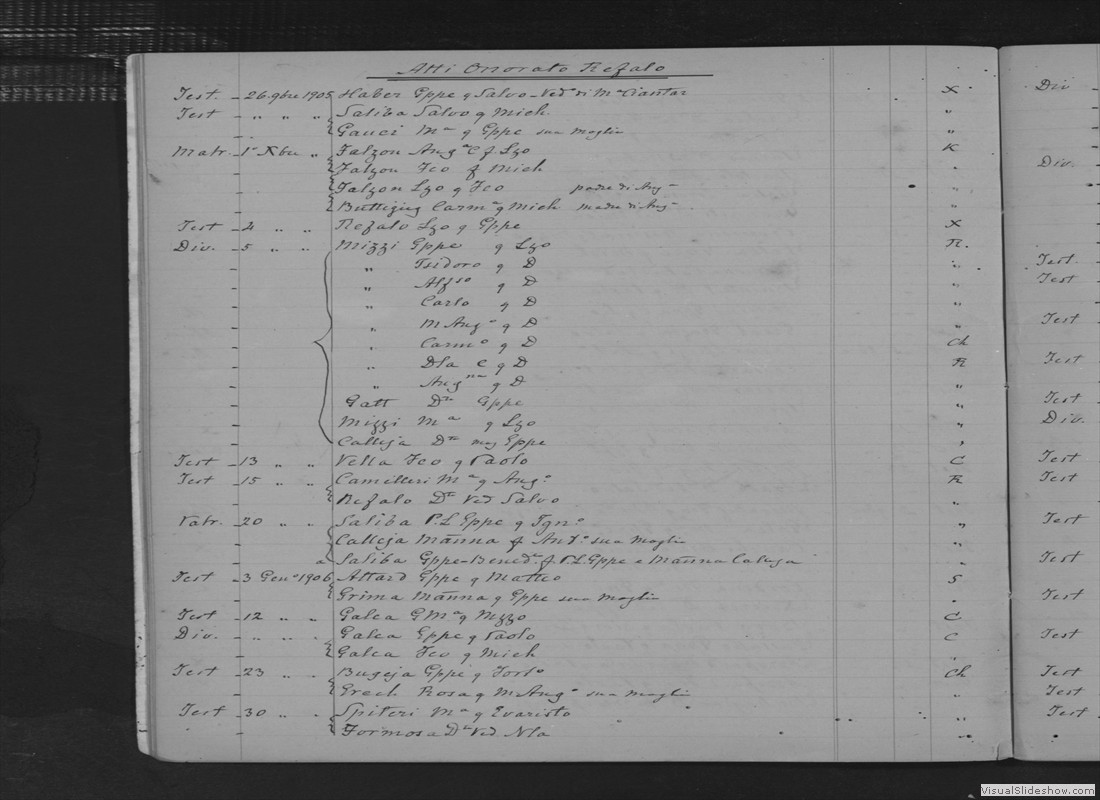 Atti Onorato Refalo
Test. 26 9bre 1905 Haber Gppe q Salvo - Ved di Mª Ciantar X
Test „ „ „ Saliba Salvo q Mich. „
Gauci Mª q Gppe sua moglie „
Matr. 1º Xbre „ Falzon Angª C f Lzo K
Falzon Fco f Mich „
Falzon Lzo q Fco padre di Angª „
Buttigieg Carmª q Mich madre di Angª „
Test 2 „ „ Refalo Lzo q Gppe X
Div. 5 „ „ Mizzi Gppe q Lzo R.
„ Isidoro q D „
„ Alfso q D „
„ Carlo q D „
„ M Angº q D „
„ Carmº q D Ch
„ Dla C q D R
„ Angna q D „
Gatt Dª Gppe „
Mizzi Mª q Lzo „
Calleja Dª mog Gppe „
Test 13 „ „ Vella Fco q Paolo C
Test 15 „ „ Camilleri Mª q Angº R
Refalo Dª Ved Salvo „
Natr. 20 „ „ Saliba P.L Gppe q Ignº „
Calleja Mãnna f Antº sua moglie „
a Saliba Gppe-Bened.º f. P.L. Gppe e Mãnna Calleja „
Test 3 Genº 1906 Attard Gppe q Matteo S
Grima Mãnna q Gppe sua moglie „
Test 12 „ „ Galea G Mª q Nzzo C
Div. „ „ „ Galea Gppe q Paolo C
Galea Fco q Mich „
Test 23 „ „ Bugeja Gppe q Fortº Ch
Grech Rosa q M Angº sua moglie „
Test 30 „ „ Spiteri Mª q Evaristo „
Formosa Dª Ved Nla „
Div
Div.
Test.
Test
Test
Test
Test
Div.
Test
Test
Test
Test
Test
Test
Test
Test
Test
VisualSlideshow.com